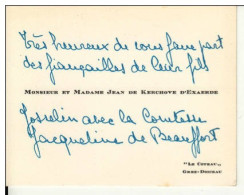 Très heureux de vous faire part
des fiançailles de leur fils
MONSIEUR ET MADAME JEAN DE KERCHOVE D'EXAERDE
Josselin avec la Comtesse
Jacqueline de Beauffort
"LE COFEAU"
GREZ-DOICEAU